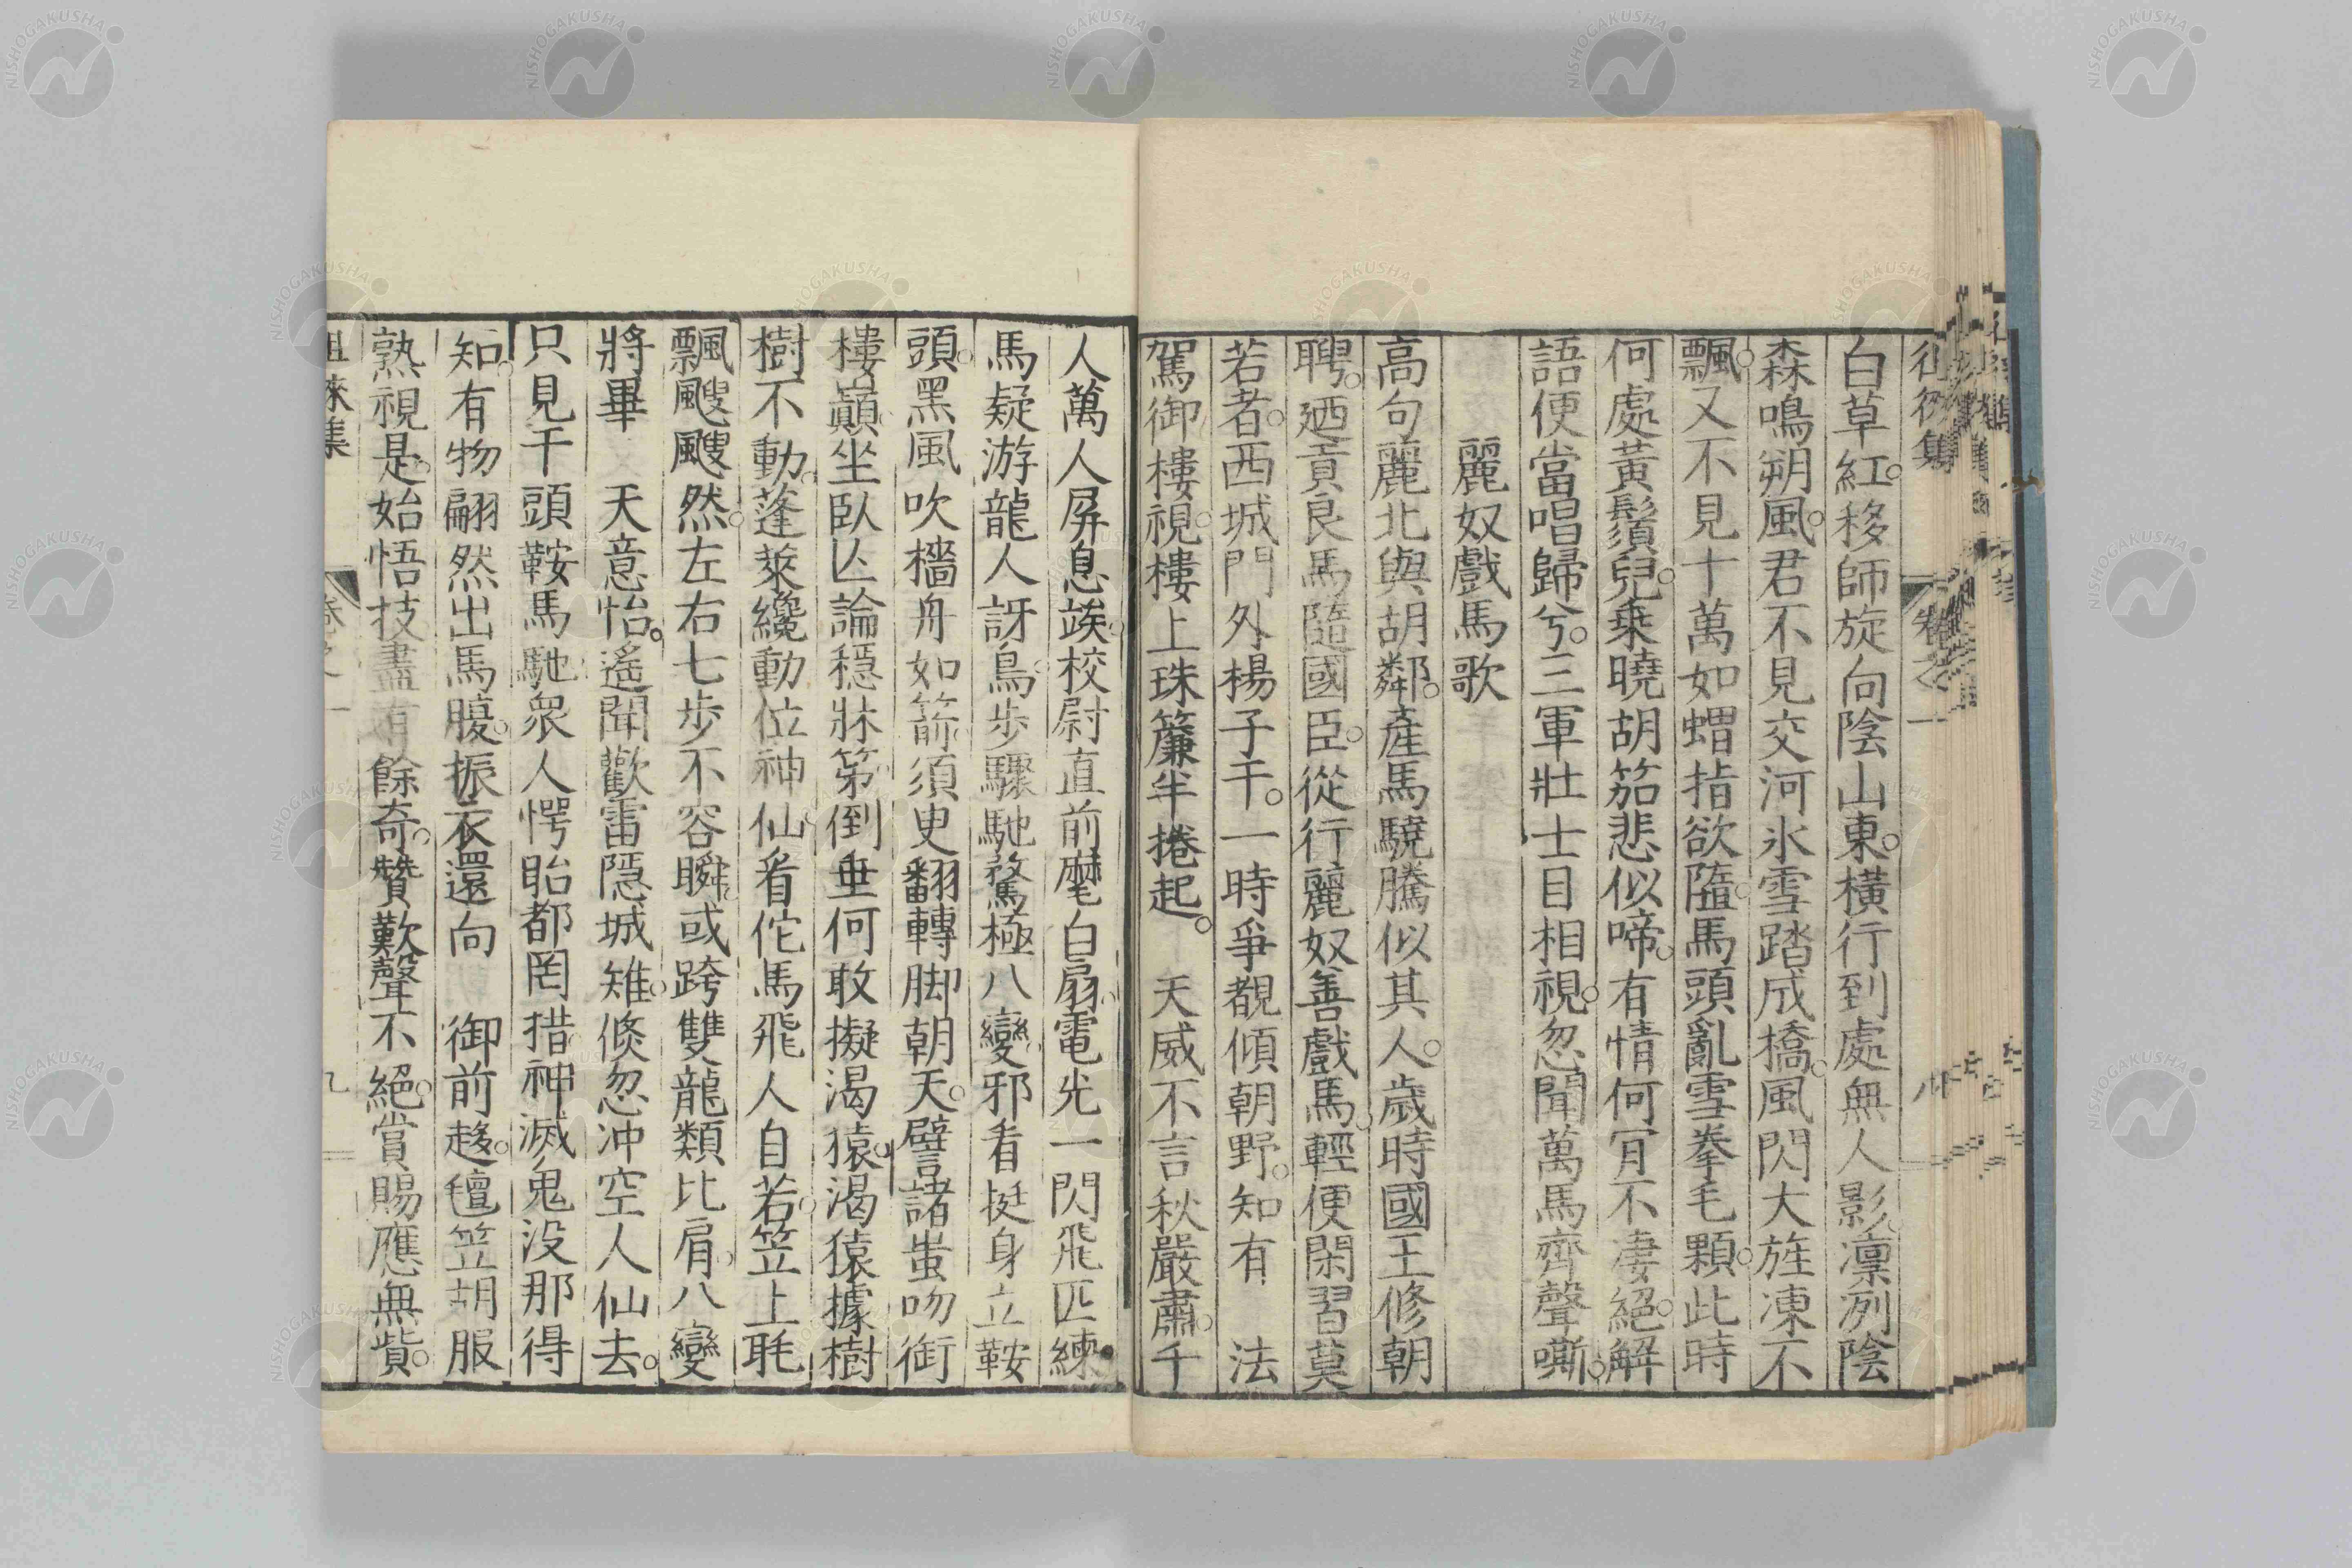 白草紅。移師旋向陰山東。橫行到處無人影。凜冽陰
森鳴朔風。君不見交河氷雪踏成橋。風閃大旌凍不
飄。又不見十萬如蝟指欲隨。馬頭亂雪拳毛顆。此時
何處黃鬚兒。乗曉胡笳悲似啼。有情何肎不凄絕。解
語便當唱歸兮。三軍壯士目相視。忽聞萬馬齊聲嘶。
麗奴戲馬歌
高句麗北與胡鄰。產馬驍騰似其人。歲時國王修朝
聘。廼貢良馬隨國臣。從行麗奴善戲馬。輕便閑習莫
若者。西城門外楊子干。一時爭覩傾朝野。知有 法
駕御樓視。樓上珠簾半捲起。 天威不言秋嚴肅。千
人萬人屏息竢。校尉直前麾白扇。電光一閃飛匹練。
馬疑游龍人訝鳥。步驟馳騖極八變。邪看挺身立鞍
頭。黑風吹檣舟如箭。須臾翻轉脚朝天。譬諸蚩吻銜
樓巔。坐臥匹論穩牀第。倒垂何敢擬渴猿。渴猿據樹
樹不動。蓬萊纔動位神仙。看佗馬飛人自若。笠上毦
飄颼颼然。左右七步不容瞬。或跨雙龍類比肩。八變
將畢 天意怡。遙聞歡雷隱城雉。倏忽冲空人仙去。
只見千頭鞍馬馳。衆人愕眙都罔措。神滅鬼没那得
知。有物翩然出馬腹。振衣還向 御前趍。氊笠胡服
熟視是。始悟技盡有餘奇。贊歎聲不絕。賞賜應無貲。
徂徠集 卷之一 九